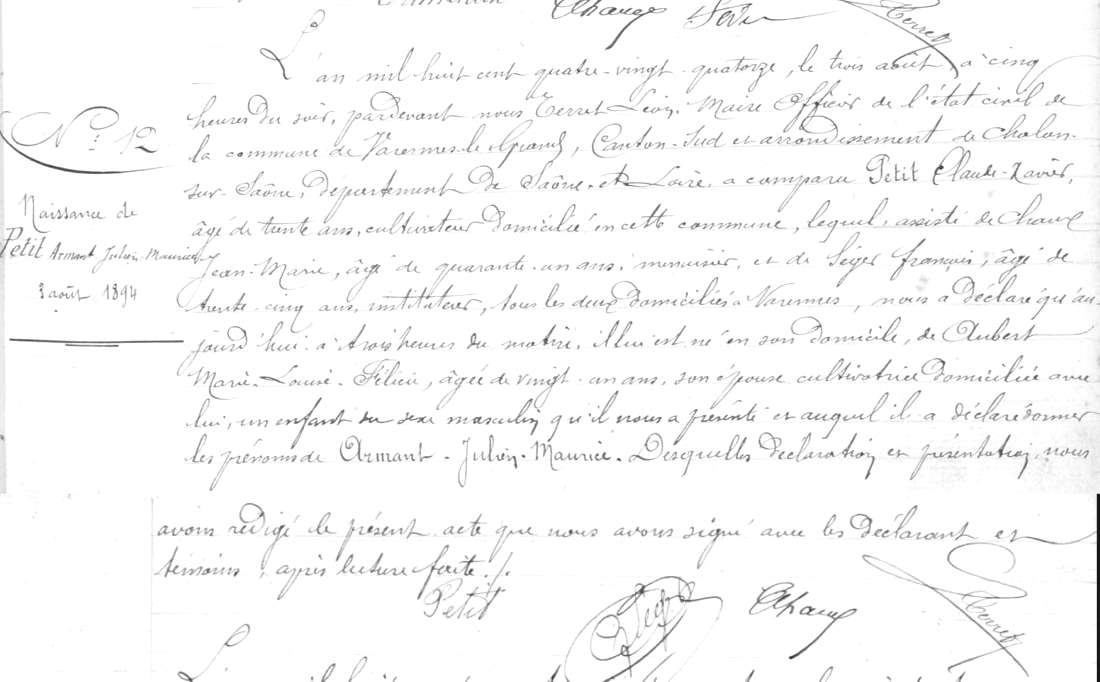 Chaux
Terret
L'an mil huit cent quatre-vingt-quatorze, le trois août, à cinq
heures du soir, pardevant nous Terret Léon, Maire Officier de l'état civil de
la commune de Varennes-le-Grand, Canton-Sud et arrondissement de Chalon-
sur-Saône, département de Saône-et-Loire, a comparu Petit Claude-Xavier,
âgé de trente ans, cultivateur domicilié en cette commune, lequel, assisté de Chaux
Jean-Marie, âgé de quarante-un ans, menuisier, et de Séger françois, âgé de
trente-cinq ans, instituteur, tous les deux domiciliés à Varennes, nous a déclaré qu'au-
jourd'hui à trois heures du matin, il lui est né en son domicile, de Aubert
Marie-Louise-Félicie, âgée de vingt-un ans, son épouse cultivatrice domiciliée avec
lui, un enfant du sexe masculin qu'il nous a présenté et auquel il a déclaré donner
les prénoms de Armant-Julien-Maurice. Desquelles déclaration et présentation, nous
avons rédigé le présent acte que nous avons signé avec les déclarant et
témoins, après lecture faite./.
Petit
Chaux
Terret
N° 12
Naissance de
Petit Armant Julien-Maurice
3 août 1894